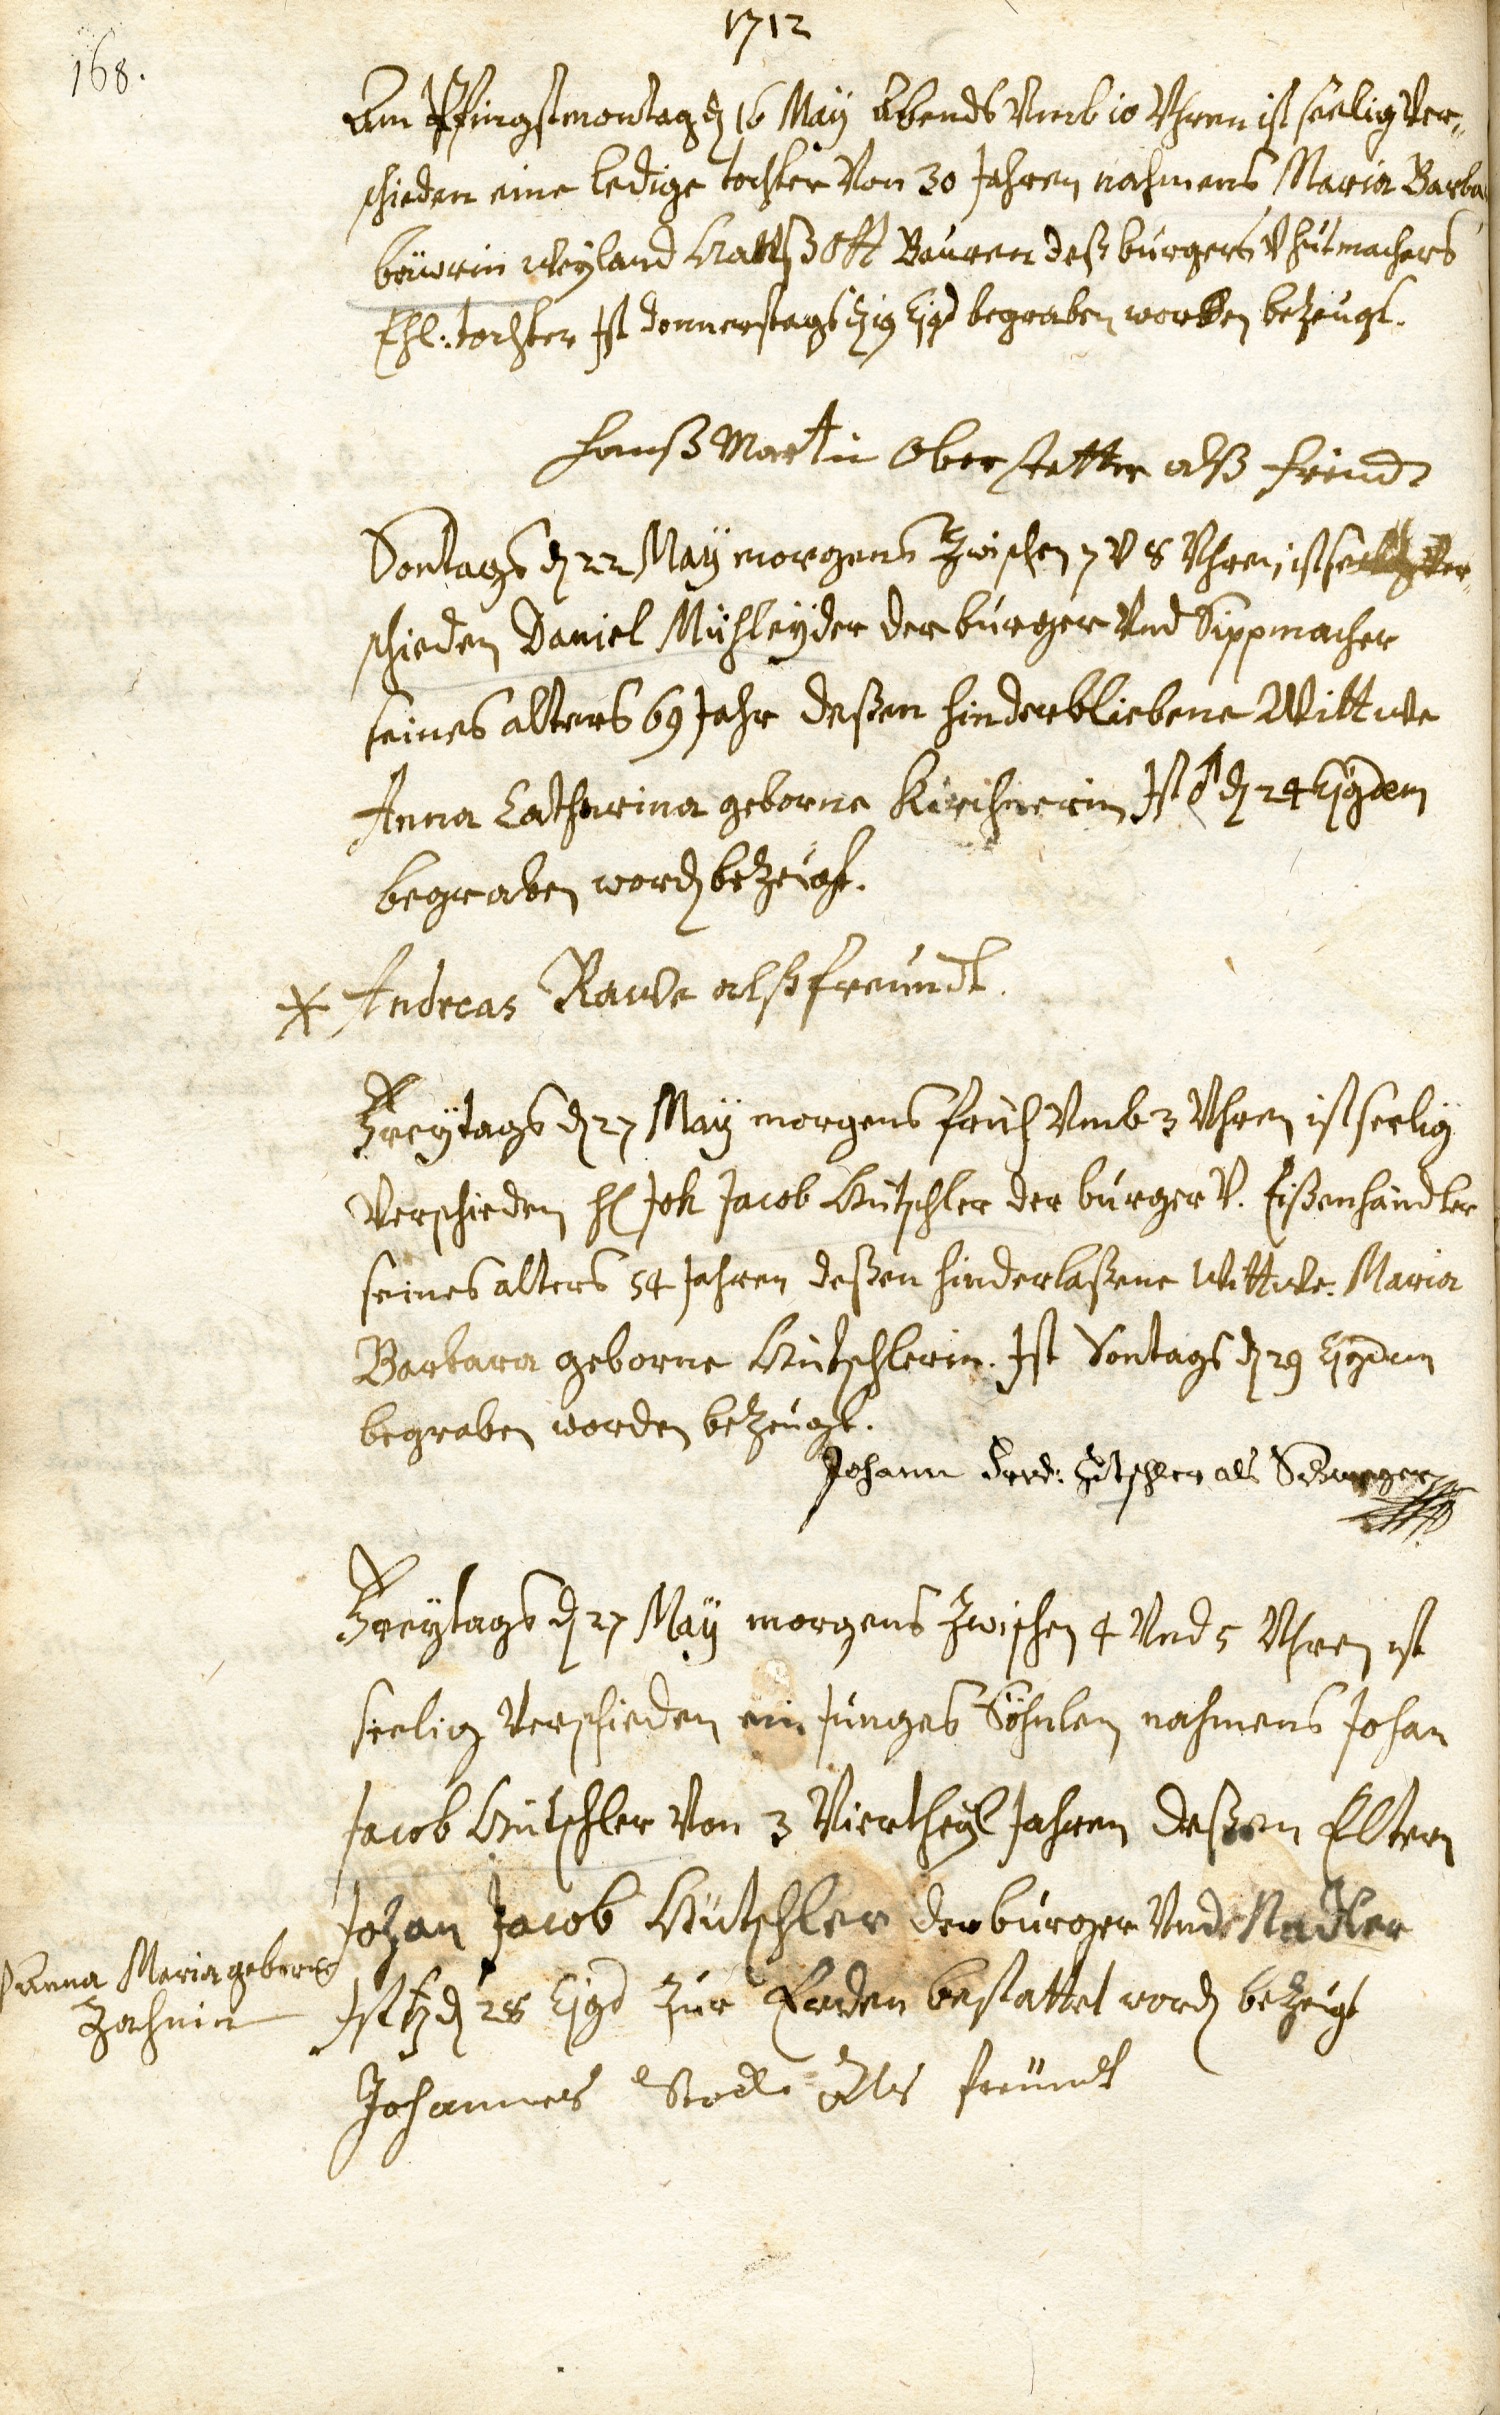 1712
168.
Am Pfingstmontag d 16 Maÿ Abends Vmb 10 Vhren ist seelig Ver„
schieden eine ledige tochter Von 30 Jahren nahmens Maria Barba
beÿland Bauren deß burgers V hutmachers
Ehl: tochter Ist donnerstags d 19 Ejgd begraben worden bezeugt.
Hanß Martin Oberstetter alß freind
Sontags d 22 Maÿ morgens Zwischen 7 V 8 Vhren, ist seelig Ver„
schieden Daniel Mühleÿder der burger Vnd Sippmacher
seines alters 69 Jahr deßen hinderbliebene Wittwe
Anna Catharina geborne Kirchnerin Ist d 24 Ejgdem
begraben word bezeugt.
* Andreas Rauve alß freundt.
Freÿtags d 27 Maÿ morgens früh Vmb 3 Vhren ist seelig
Verschieden H Joh Jacob Kütschler der burger V. Eißenhändler
seines alters 54 Jahren deßen hinderlaßene Wittwe: Maria
Barbara geborne Kütschlerin. Ist Sontags d 29 Ejgdem
begraben worden bezeugt.
Johann Kütschler als Schwager
Freÿtags d 27 Maÿ morgens Zwischen 4 Vnd 5 Vhren ist
seelig Verschieden ein Junges Söhnlen nahmens Johan
Jacob Kütschler Von 3 Viertheÿl Jahren deßen Eltern
Johan Jacob Kütschler der burger Vnd Nadler
Anna Maria geborne
Zachnin
Ist d 28 Ejgd zur Erden bestattet word bezeugt
Johannes Als freündt